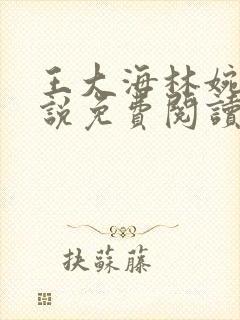 王大海林婉
説免費閱讀
抉蘇藤